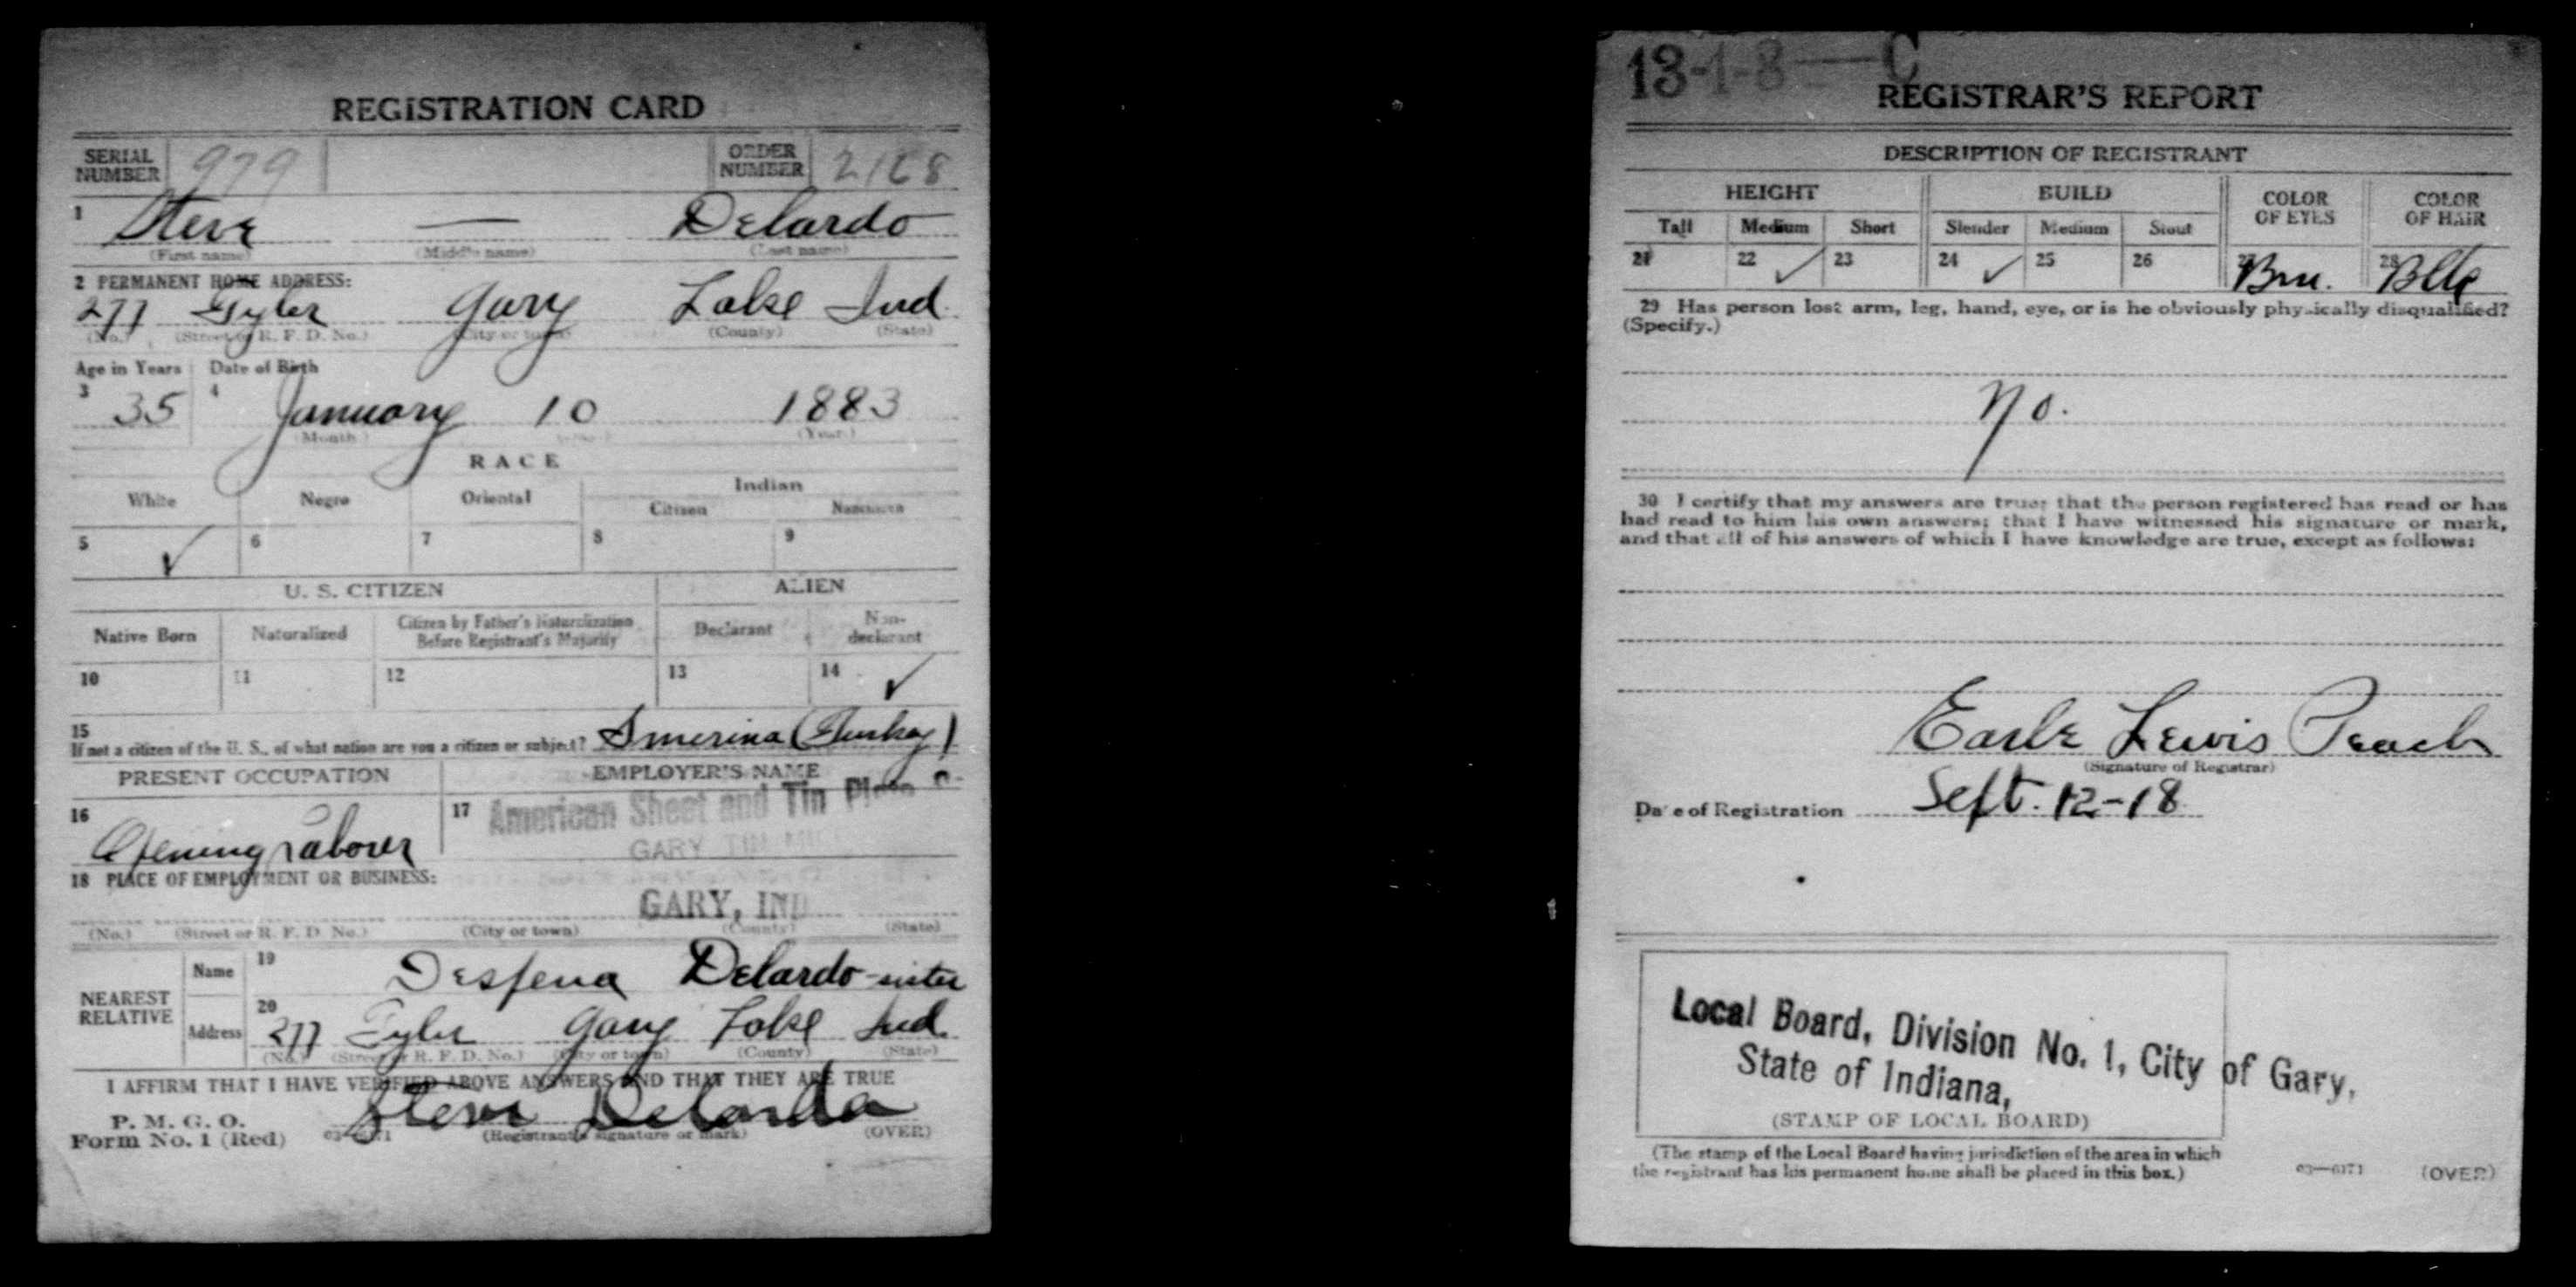 REGISTRATION CARD
SERIAL NUMBER 979 ORDER NUMBER 2168
1 Steve — Delardo
(First name) (Middle name) (Last name)
2 PERMANENT HOME ADDRESS:
277 Tyler Gary Lake Ind.
(No.) (Street or R. F. D. No.) (City or town) (County) (State)
Age in Years Date of Birth
3 35 4 January 10 1883
(Month) (Day) (Year)
RACE
White Negro Oriental Indian
Citizen Noncitizen
5 ✓ 6 7 8 9
U. S. CITIZEN ALIEN
Native Born Naturalized Citizen by Father's Naturalization Before Registrant's Majority Declarant Non-declarant
10 11 12 13 14 ✓
15 If not a citizen of the U. S., of what nation are you a citizen or subject? Smerina (Turkey)
PRESENT OCCUPATION EMPLOYER'S NAME
16 Opening Laborer 17 American Sheet and Tin Plate
GARY TIN
18 PLACE OF EMPLOYMENT OR BUSINESS:
GARY, IND
(No.) (Street or R. F. D. No.) (City or town) (County) (State)
NEAREST RELATIVE Name 19 Despena Delardo-sister
Address 20 277 Tyler Gary Lake Ind.
(No.) (Street or R. F. D. No.) (City or town) (County) (State)
I AFFIRM THAT I HAVE VERIFIED ABOVE ANSWERS AND THAT THEY ARE TRUE
P. M. G. O.
Form No. 1 (Red) 03—6171 Steve Delarda
(Registrant's signature or mark) (OVER)
13-1-8—C
REGISTRAR'S REPORT
DESCRIPTION OF REGISTRANT
HEIGHT BUILD COLOR OF EYES COLOR OF HAIR
Tall Medium Short Slender Medium Stout
21 22 ✓ 23 24 ✓ 25 26 27 Brn. 28 Blk
29 Has person lost arm, leg, hand, eye, or is he obviously physically disqualified?
(Specify.)
No.
30 I certify that my answers are true; that the person registered has read or has
had read to him his own answers; that I have witnessed his signature or mark,
and that all of his answers of which I have knowledge are true, except as follows:
Earle Lewis Peach
(Signature of Registrar)
Date of Registration Sept. 12-18
Local Board, Division No. 1, City of Gary,
State of Indiana,
(STAMP OF LOCAL BOARD)
(The stamp of the Local Board having jurisdiction of the area in which
the registrant has his permanent home shall be placed in this box.)
03—6171 (OVER)